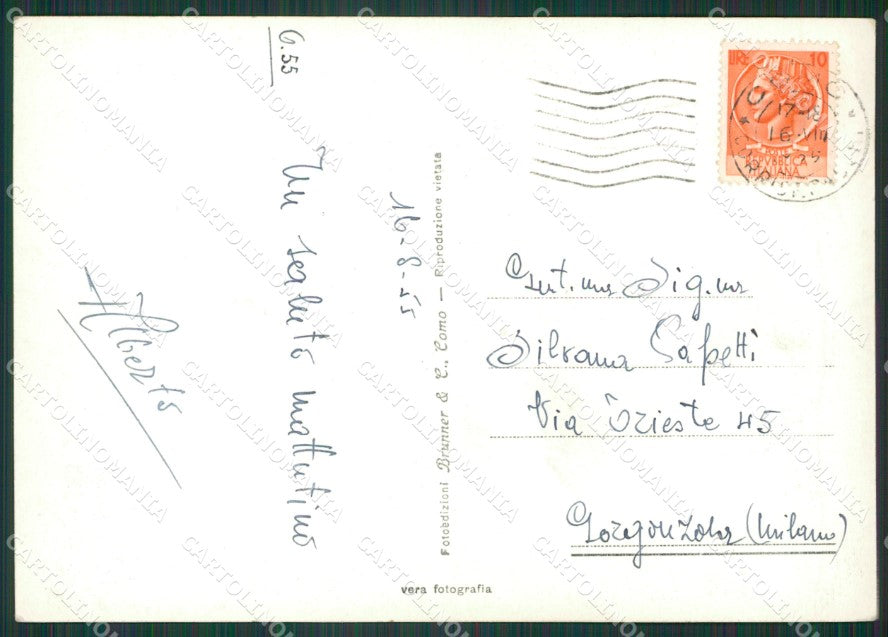 6.55
Un saluto mattutino
Alberto
16-8-55
Fotoedizioni Brunner & C., Como — Riproduzione vietata
vera fotografia
LIRE 10
REPUBBLICA
ITALIANA
17-18
16 VIII
Gent.ma Sig.na
Silvana Sapetti
Via Trieste 45
Gorgonzola (Milano)
CARTOLINOMANIA